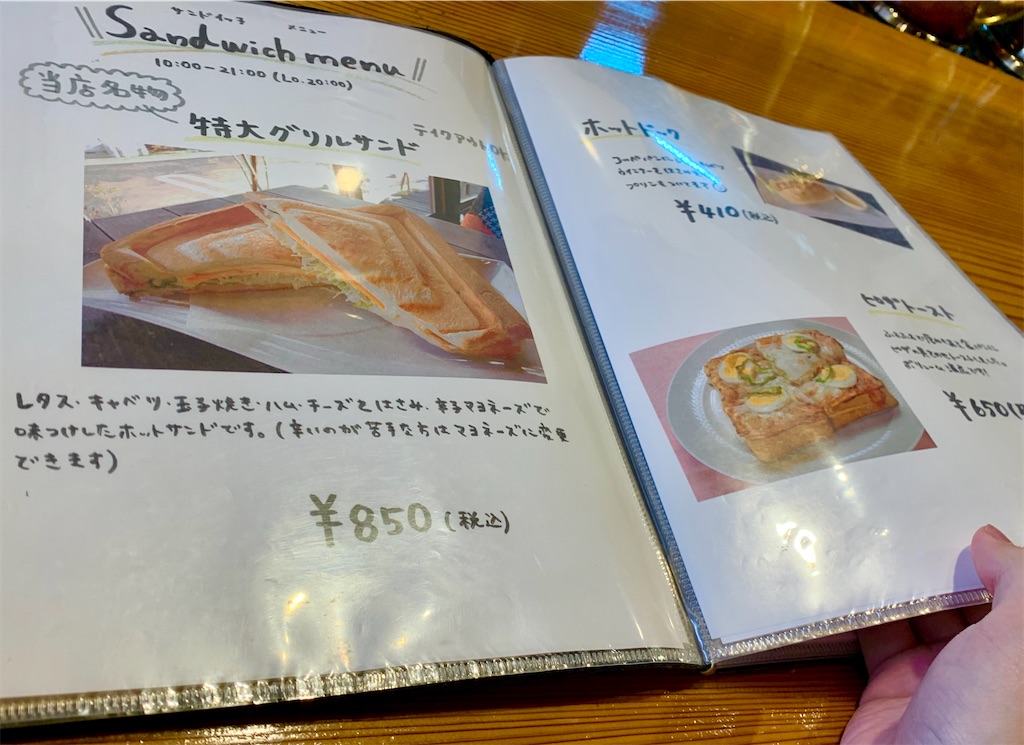 サンドイッチ メニュー
Sandwich menu
10:00-21:00 (Lo.20:00)
当店名物
特大グリルサンド テイクアウトOK
レタス・キャベツ・玉子焼き・ハム・チーズをはさみ、辛子マヨネーズで
味つけしたホットサンドです。(辛いのが苦手な方はマヨネーズに変更
できます)
¥850 (税込)
ホットドック
¥410 (税込)
ピザトースト
¥650